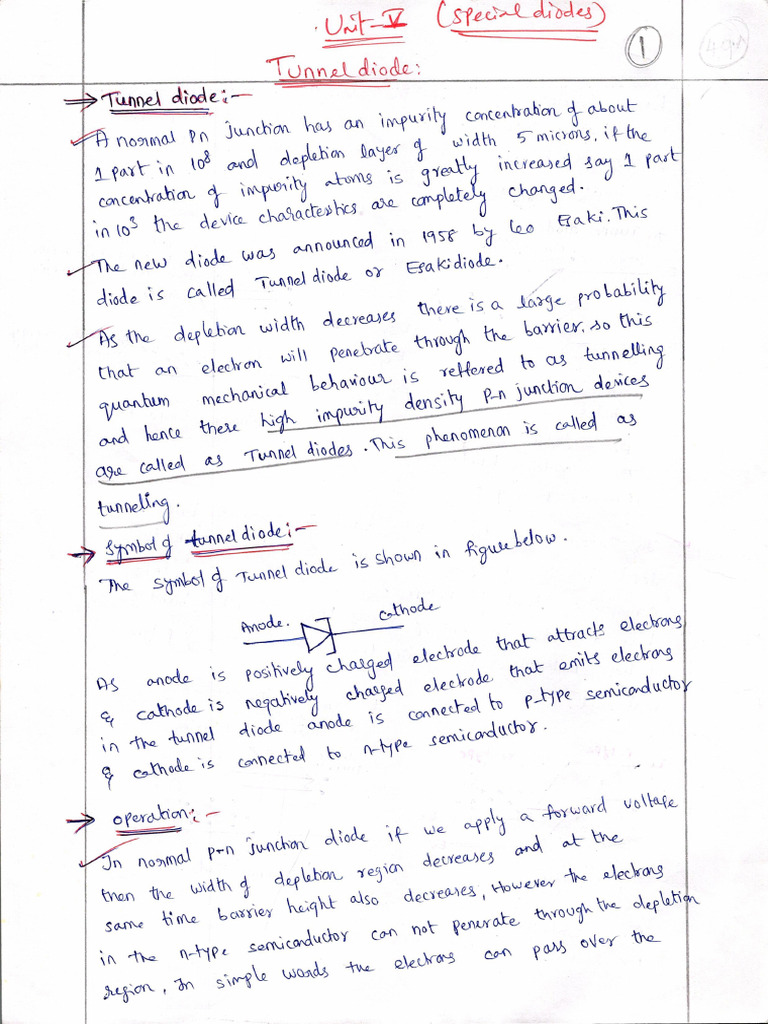 Unit-V (special diodes)
1
Tunnel diode:
⇒ Tunnel diode:-
A normal pn junction has an impurity concentration of about
1 part in 10⁸ and depletion layer of width 5 microns, if the
concentration of impurity atoms is greatly increased say 1 part
in 10³ the device characteristics are completely changed.
The new diode was announced in 1958 by Leo Esaki. This
diode is called Tunnel diode or Esaki diode.
As the depletion width decreases there is a large probability
that an electron will penetrate through the barrier, so this
quantum mechanical behaviour is reffered to as tunnelling
and hence these high impurity density p-n junction devices
are called as Tunnel diodes. This phenomenon is called as
tunneling.
Symbol of tunnel diode:-
The symbol of Tunnel diode is shown in figure below.
Anode. Cathode
As anode is positively charged electrode that attracts electrons
& cathode is negatively charged electrode that emits electrons
in the tunnel diode anode is connected to p-type semiconductor
& cathode is connected to n-type semiconductor.
operation:-
In normal p-n junction diode if we apply a forward voltage
then the width of depletion region decreases and at the
same time barrier height also decreases, However the electrons
in the n-type semiconductor can not penerate through the depletion
region, In simple words the electrons can pass over the